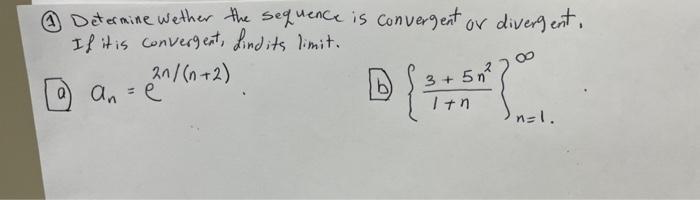 ① Determine wether the sequence is convergent or divergent.
If it is convergent, find its limit.
a aₙ = e^{2n/(n+2)}.
b { (3 + 5n²)/(1+n) }^∞_{n=1}.